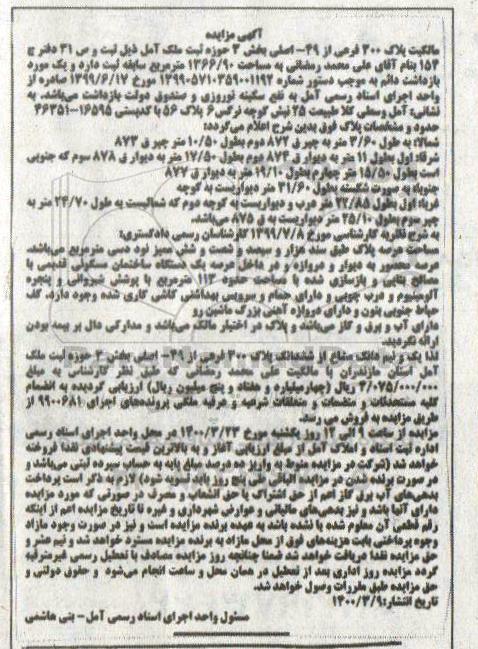 آگهی مزایده
مالکیت پلاک ۳۰۰ فرعی از ۴۹- اصلی بخش ۳ حوزه ثبت ملک آمل ذیل ثبت و ص ۳۱ دفتر ج
۱۵۴ بنام آقای علی محمد رمضانی به مساحت ۱۳۶۶/۹۰ مترمربع سابقه ثبت دارد و یک مورد
بازداشت دائم به موجب دستور شماره ۱۳۹۹۰۵۷۱۰۳۵۹۰۰۱۱۹۲ مورخ ۱۳۹۹/۶/۱۷ صادره از
واحد اجرای اسناد رسمی آمل به نفع سکینه نوروزی و صندوق دولت بازداشت می‌باشد. به
نشانی: آمل وسطی کلا طبیعت ۲۵ نبش کوچه نرگس ۶ پلاک ۵۶ با کدپستی ۱۶۵۹۵-۴۶۳۵۱
حدود و مشخصات پلاک فوق بدین شرح اعلام می‌گردد:
شمالا: به طول ۳/۶۰ متر به چپر ق ۸۷۲ دوم بطول ۱۰/۵۰ متر چپر ق ۸۷۳
شرقا: اول بطول ۱۱ متر به دیوار ق ۸۷۴ دوم بطول ۱۷/۵۰ متر به دیوار ق ۸۷۸ سوم که جنوبی
است بطول ۱۵/۵۰ متر چهارم بطول ۱۹/۱۰ متر به دیوار ق ۸۷۷
جنوبا: به صورت شکسته بطول ۳۱/۶۰ متر دیواریست به کوچه
غربا: اول بطول ۲۲/۸۵ متر درب و دیواریست به کوچه دوم که شمالیست به طول ۲۴/۷۰ متر به
چپر سوم بطول ۲۵/۱۰ متر دیواریست به ق ۸۷۵ می‌باشد.
به شرح نظریه کارشناسی مورخ ۱۳۹۹/۷/۸ کارشناسان رسمی دادگستری:
مساحت عرصه پلاک طبق سند هزار و سیصد و شصت و شش ممیز نود دسی مترمربع می‌باشد.
عرصه محصور به دیوار و دروازه و در داخل عرصه یک دستگاه ساختمان مسکونی قدیمی با
مصالح بنایی و بازسازی شده با مساحت حدود ۱۱۳ مترمربع با پوشش شیروانی و پنجره
آلومینیوم و درب چوبی و دارای حمام و سرویس بهداشتی کاشی کاری شده وجود دارد. کف
حیاط جنوبی بتون و دارای دروازه آهنی بزرگ ماشین رو
دارای آب و برق و گاز می‌باشد و پلاک در اختیار مالک می‌باشد و مدارکی دال بر بیمه بودن
ارائه نگردید.
لذا یک و نیم دانگ مشاع از ششدانگ پلاک ۳۰۰ فرعی از ۴۹- اصلی بخش ۳ حوزه ثبت ملک
آمل استان مازندران با مالکیت علی محمد رمضانی که طبق نظر کارشناسی به مبلغ
۴/۰۷۵/۰۰۰/۰۰۰ ریال (چهارمیلیارد و هفتاد و پنج میلیون ریال) ارزیابی گردیده به انضمام
کلیه مستحدثات و منضمات و متعلقات شرعیه و عرفیه ملکی پرونده‌های اجرای ۹۹۰۰۶۸۱ از
طریق مزایده به فروش می رسد.
مزایده از ساعت ۹ الی ۱۲ روز یکشنبه مورخ ۱۴۰۰/۳/۲۳ در محل واحد اجرای اسناد رسمی
اداره ثبت اسناد و املاک آمل از مبلغ ارزیابی آغاز و به بالاترین قیمت پیشنهادی نقدا فروخته
خواهد شد (شرکت در مزایده منوط به واریز ده درصد مبلغ پایه به حساب سپرده ثبتی می‌باشد و
در صورت برنده شدن در مزایده الباقی طی پنج روز باید تسویه شود) لازم به ذکر است پرداخت
بدهی‌های آب برق گاز اعم از حق اشتراک یا حق انشعاب و مصرف در صورتی که مورد مزایده
دارای آنها باشد و نیز بدهی‌های مالیاتی و عوارض شهرداری و غیره تا تاریخ مزایده اعم از اینکه
رقم قطعی آن معلوم شده یا نشده باشد به عهده برنده مزایده است و نیز در صورت وجود مازاد
وجوه پرداختی بابت هزینه‌های فوق از محل مازاد به برنده مزایده مسترد خواهد شد و نیم عشر و
حق مزایده نقدا دریافت خواهد شد ضمنا چنانچه روز مزایده مصادف با تعطیل رسمی غیرمترقبه
گردد مزایده روز اداری بعد از تعطیل در همان محل و ساعت انجام می‌شود و حقوق دولتی و
حق مزایده طبق مقررات وصول خواهد شد.
تاریخ انتشار:۱۴۰۰/۳/۹
مسئول واحد اجرای اسناد رسمی آمل- بنی هاشمی